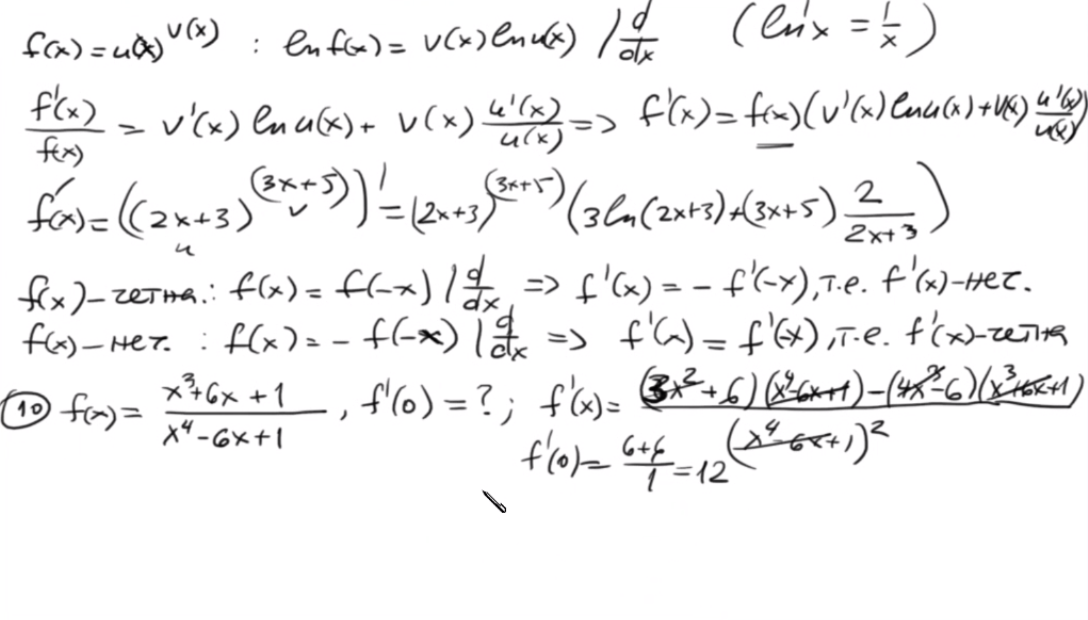 f(x) = u(x)^v(x) : ln f(x) = v(x) ln u(x) / d/dx (ln'x = 1/x)
f'(x)/f(x) = v'(x) ln u(x) + v(x) u'(x)/u(x) => f'(x) = f(x) (v'(x) ln u(x) + v(x) u'(x)/u(x)
f'(x) = ((2x+3)^(3x+5))' = (2x+3)^(3x+5) (3 ln(2x+3) + (3x+5) 2/(2x+3))
u v
f(x) – четна : f(x) = f(-x) / d/dx => f'(x) = - f'(-x), т.е. f'(x) – неч.
f(x) – неч. : f(x) = - f(-x) | d/dx => f'(x) = f'(-x), т.е. f'(x) – четна
10 f(x) = (x³+6x+1)/(x⁴-6x+1), f'(0) = ? ; f'(x) = ((3x²+6)(x⁴-6x+1) - (4x³-6)(x³+6x+1))/(x⁴-6x+1)²
f'(0) = (6+6)/1 = 12